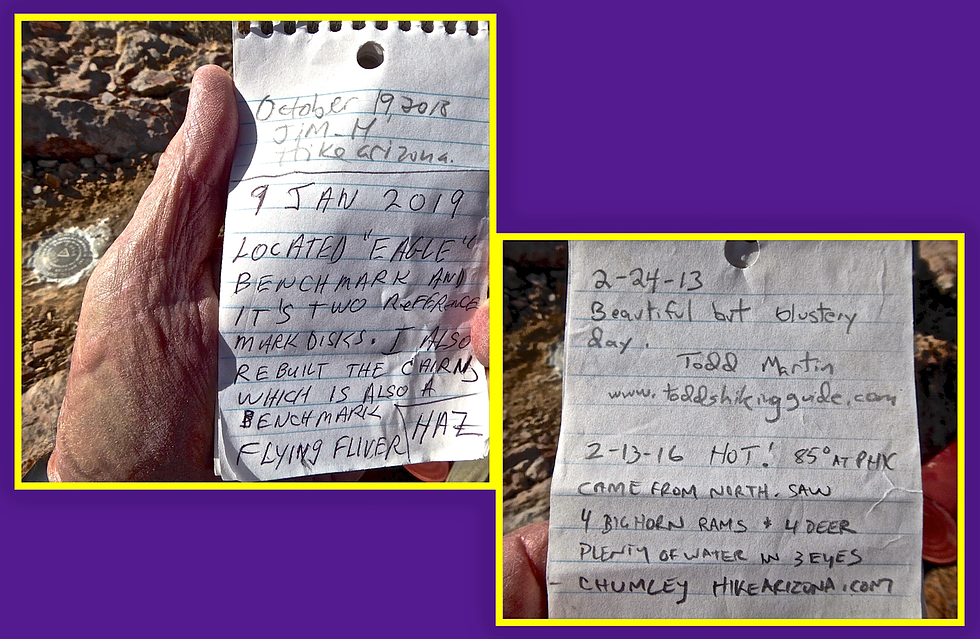 October 19, 2018
Jim-H
Hike arizona.
9 JAN 2019
LOCATED "EAGLE"
BENCHMARK AND
IT'S TWO REFERENCE
MARK DISKS. I ALSO
REBUILT THE CAIRN,
WHICH IS ALSO A
BENCHMARK
FLYING FLIVER HAZ
2-24-13
Beautiful but blustery
day.
Todd Martin
www.toddshikingguide.com
2-13-16 HOT! 85° AT PHX
CAME FROM NORTH. SAW
4 BIGHORN RAMS + 4 DEER
PLENTY OF WATER IN 3 EYES
- CHUMLEY HIKEARIZONA.COM